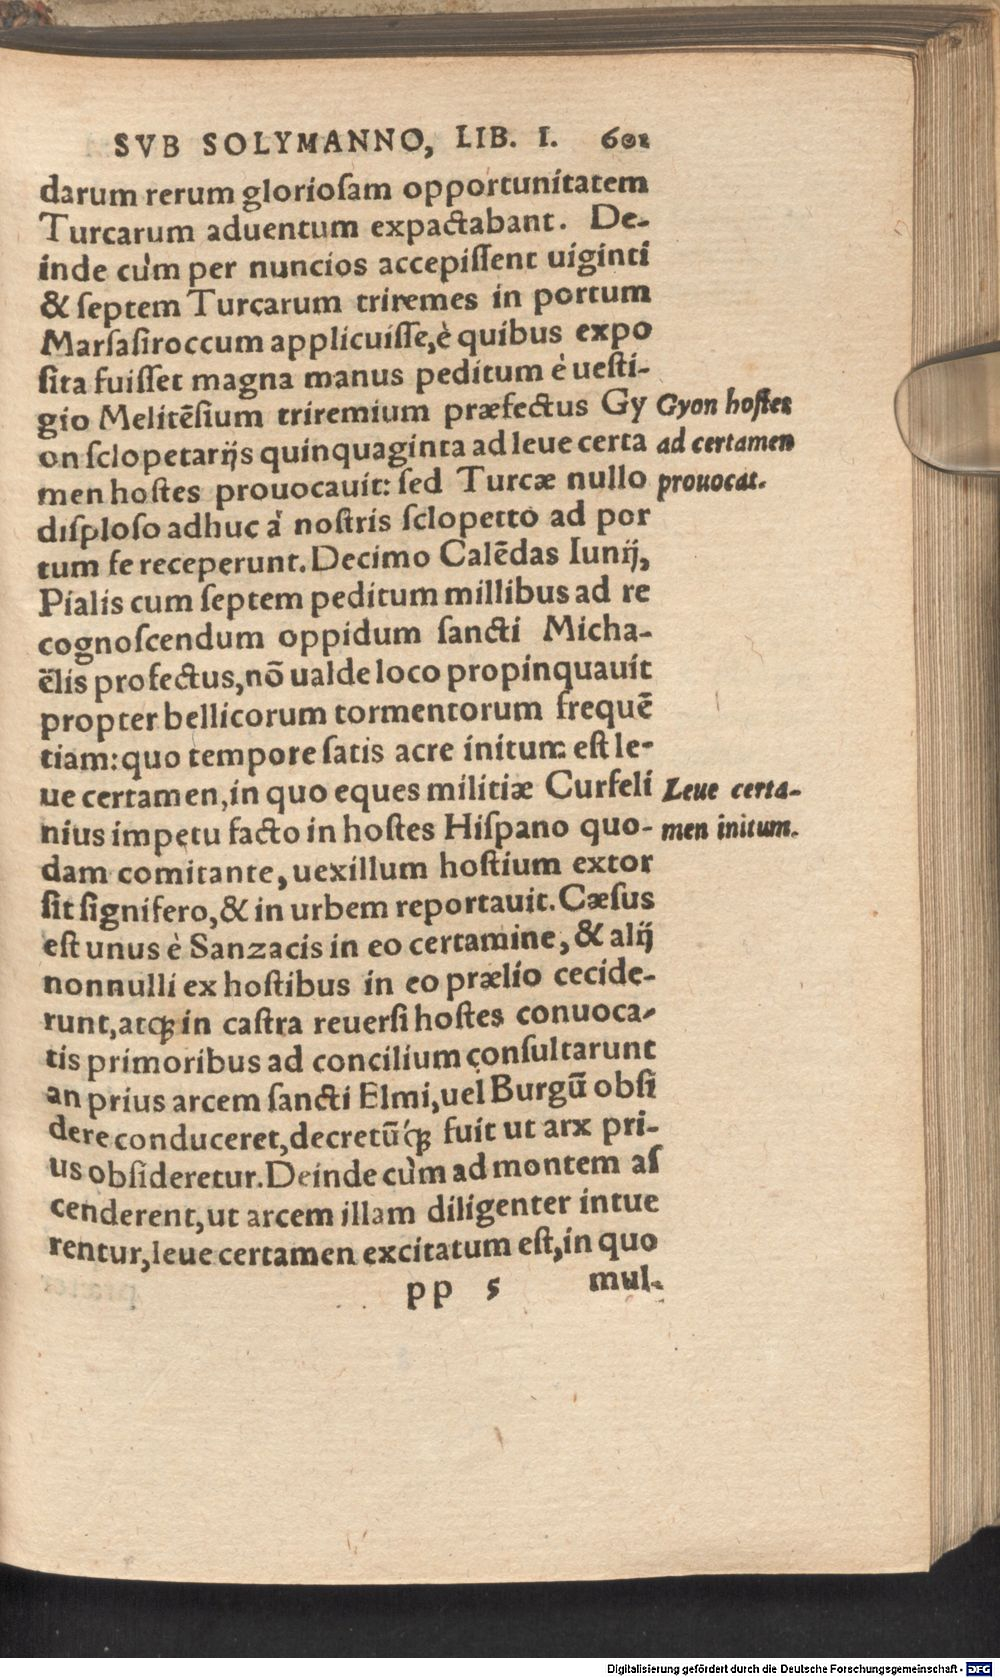 SVB SOLYMANNO, LIB. I. 601
darum rerum glorioſam opportunitatem
Turcarum aduentum expactabant. De-
inde cùm per nuncios accepiſſent uiginti
& ſeptem Turcarum triremes in portum
Marſaſiroccum applicuiſſe, è quibus expo
ſita fuiſſet magna manus peditum è ueſti-
gio Melitẽſium triremium præfectus Gy
Gyon hoſtes
on ſclopetarijs quinquaginta ad leue certa
ad certamen
men hoſtes prouocauit: ſed Turcæ nullo
prouocat.
diſploſo adhuc à noſtris ſclopetto ad por
tum ſe receperunt. Decimo Calẽdas Iunij,
Pialis cum ſeptem peditum millibus ad re
cognoſcendum oppidum ſancti Micha-
ëlis profectus, nõ ualde loco propinquauit
propter bellicorum tormentorum frequẽ
tiam: quo tempore ſatis acre initum eſt le-
ue certamen, in quo eques militiæ Curfeli
Leue certa-
nius impetu facto in hoſtes Hiſpano quo-
men initum.
dam comitante, uexillum hoſtium extor
ſit ſignifero, & in urbem reportauit. Cæſus
eſt unus è Sanzacis in eo certamine, & alij
nonnulli ex hoſtibus in eo prælio cecide-
runt, atq́; in caſtra reuerſi hoſtes conuoca-
tis primoribus ad concilium conſultarunt
an prius arcem ſancti Elmi, uel Burgũ obſi
dere conduceret, decretũq́; fuit ut arx pri-
us obſideretur. Deinde cùm ad montem aſ
cenderent, ut arcem illam diligenter intue
rentur, leue certamen excitatum eſt, in quo
pp 5 mul-
Digitalisierung gefördert durch die Deutsche Forschungsgemeinschaft - DFG